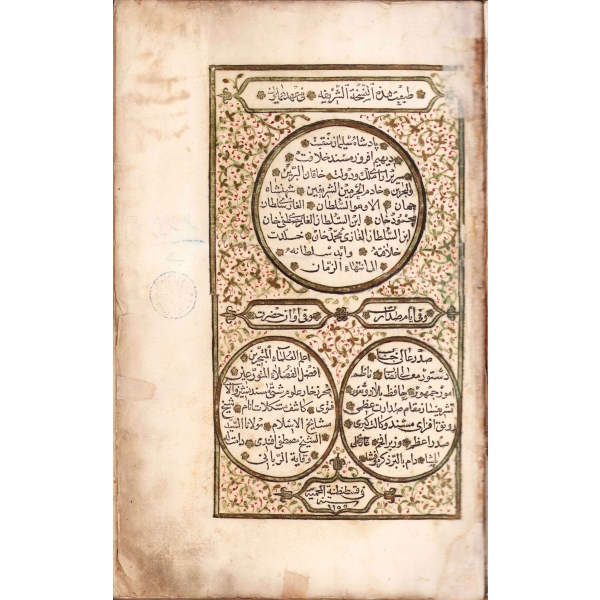 طبعت هذه النسخة الشريفة فى عهد همايون
پادشاه سليمان منقبت
ديهيم افروز مسند خلافت
سرير آراء ملك ودولت خاقان البرين
والبحرين خادم الحرمين الشريفين شهنشاه
جهان الا وهو السلطان الغازى سلطان
محمود خان ابن السلطان الغازى مصطفى خان
ابن السلطان الغازى محمد خان خلدت
خلافته وابد سلطانه
الى انتهاء الزمان
وفى ايام صدارت
وفى اوان حضرت
صدر عالى
دستور معالى ناظم
مور جمهور حافظ بلاد وثغور
تشريف مقام صدارت عظمى
رونق افزاى مسند وكالت كبرى
صدر اعظم وزير افخم
پاشا دام بالبر
اعلم العلماء المتبحرين
افضل الفضلاء المتورعين
بحر زخار علوم شتى مسند نشين والا
فتوى كاشف مشكلات انام شيخ
مشايخ الاسلام مولانا السيد
الشيخ مصطفى افندى دامت له
وقاية الربانى
فى قسطنطنية المحمية
سنه
١١٥٥